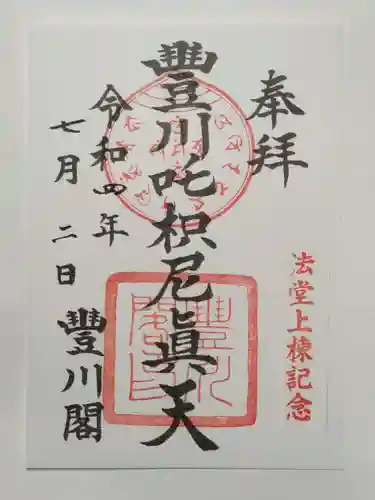 奉拝
法堂上棟記念
豐川吒枳尼眞天
令和四年
七月二日
豐川閣